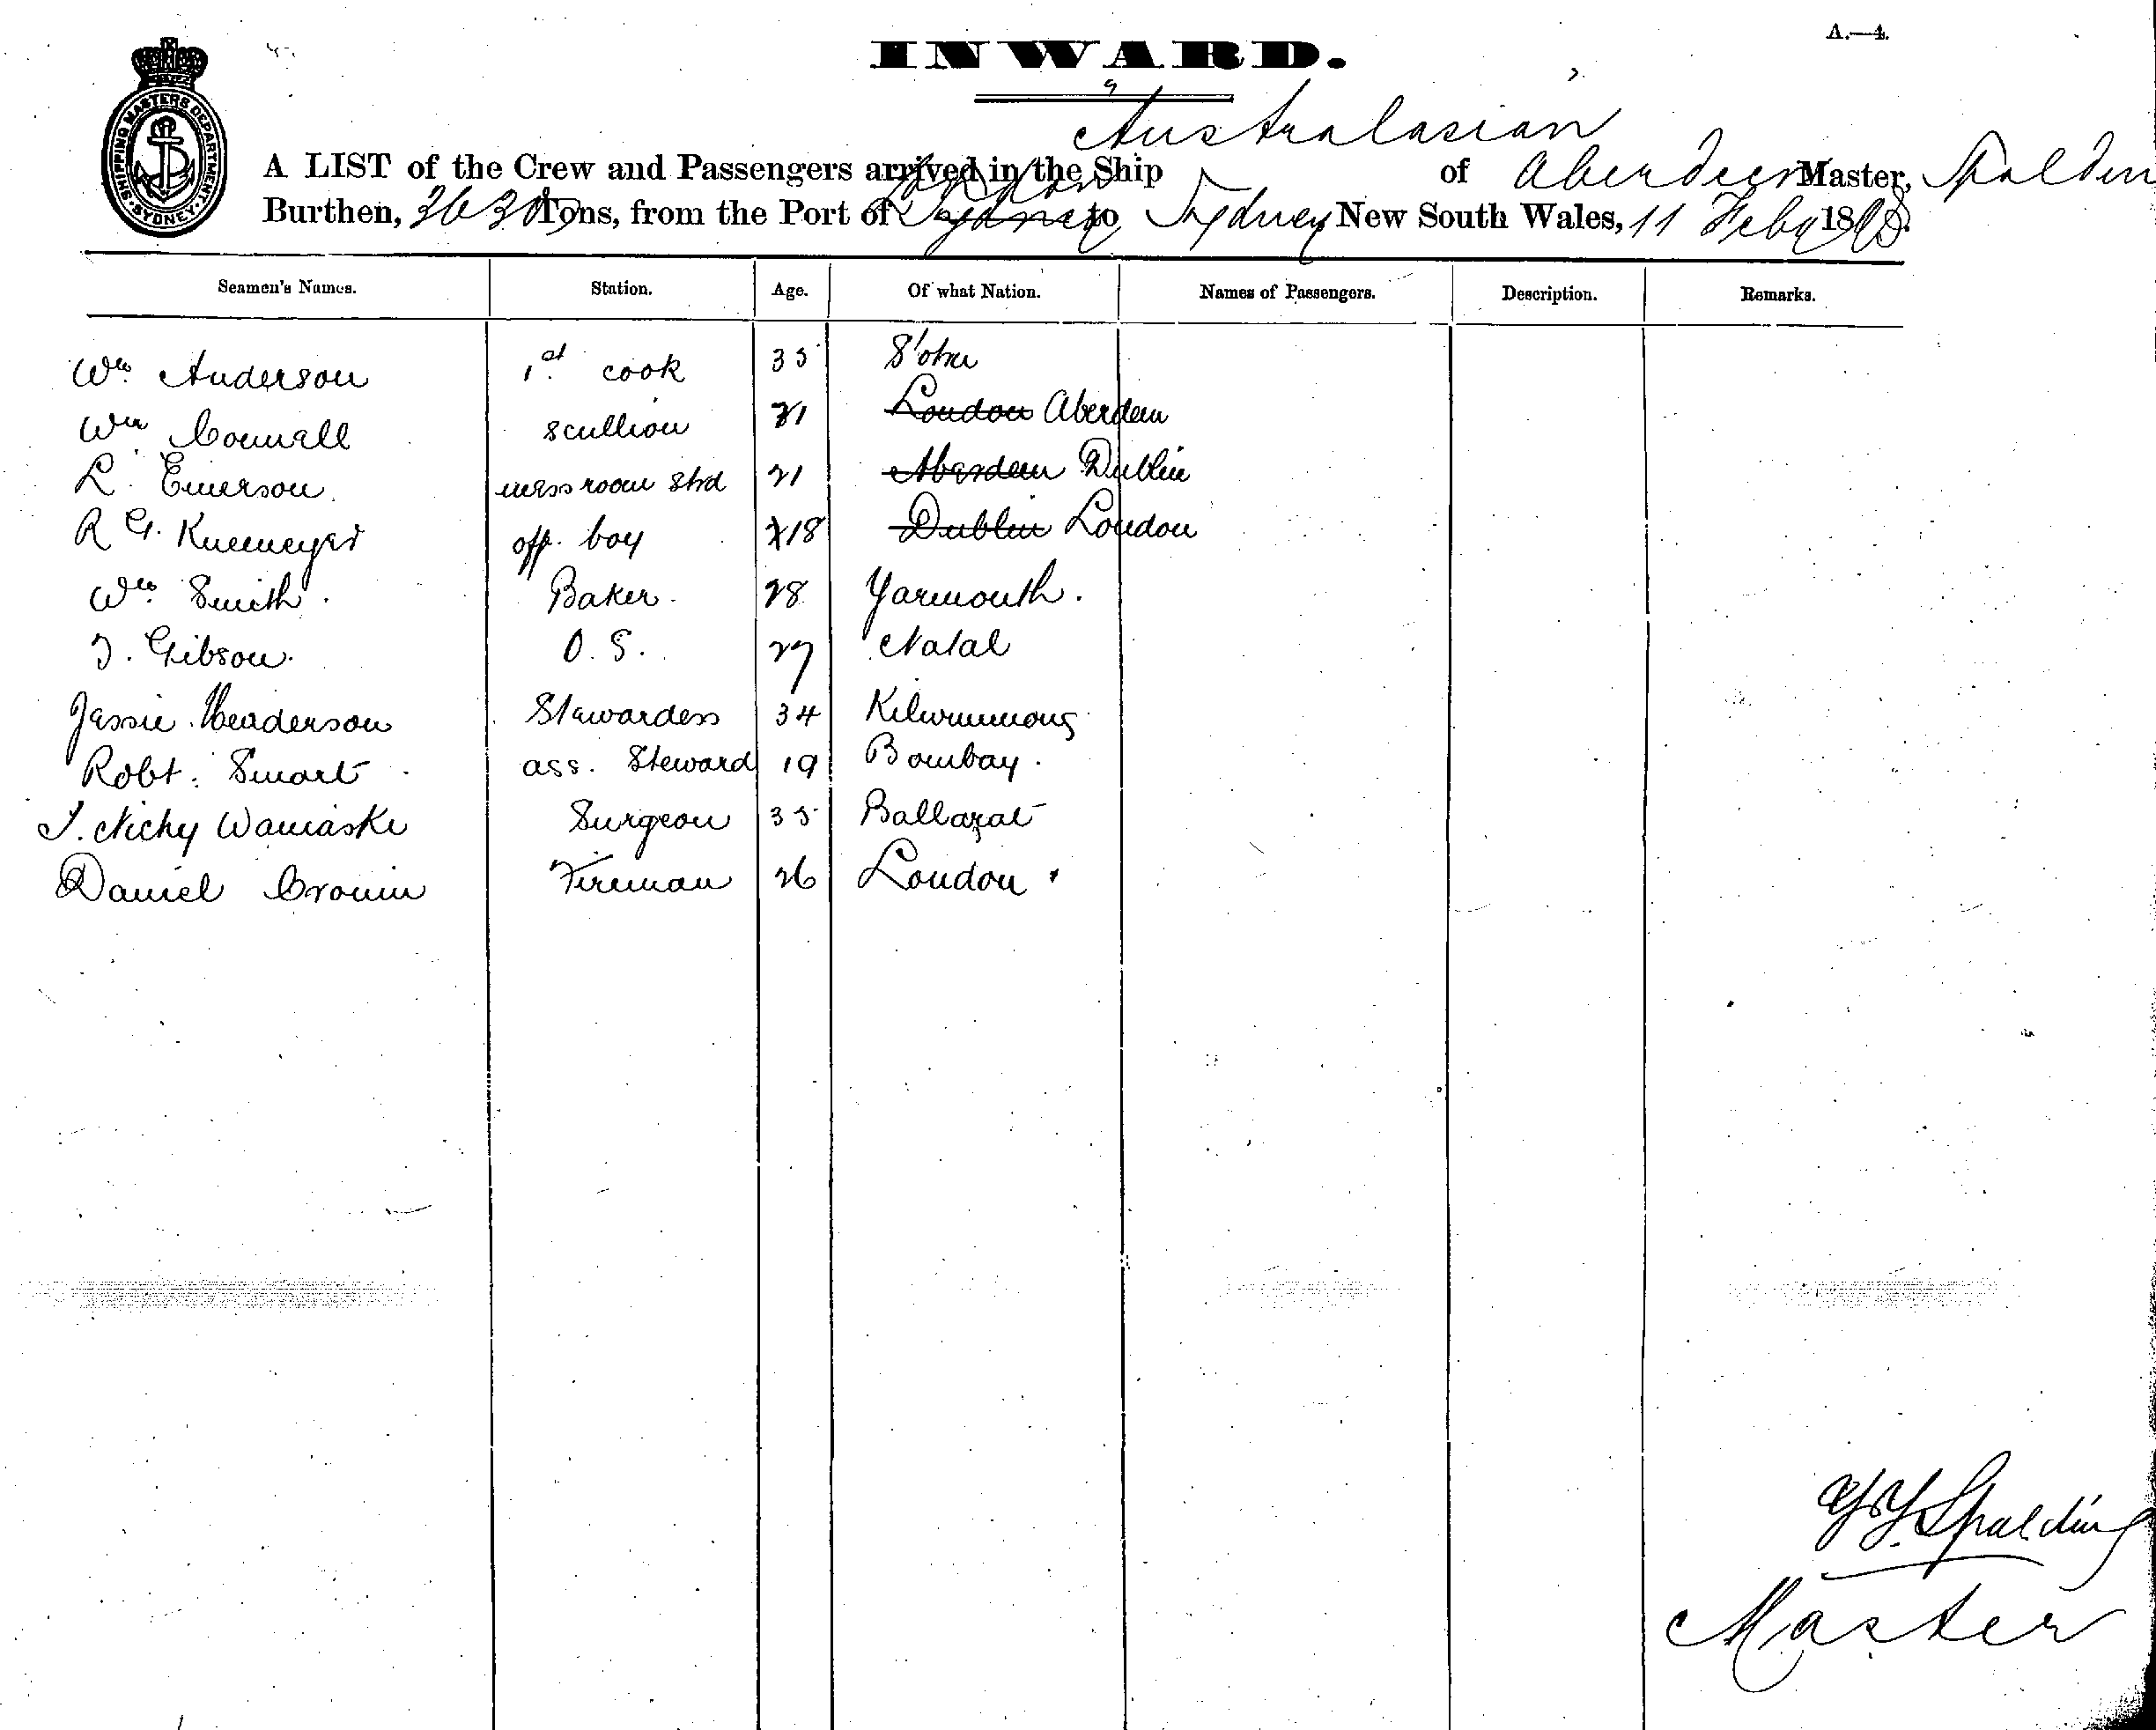 A.—4.
INWARD.
SHIPPING MASTERS DEPARTMENT SYDNEY
Australasian
A LIST of the Crew and Passengers arrived in the Ship of Aberdeen Master, Spalding
London
Burthen, 3630 Tons, from the Port of Sydney to Sydney New South Wales, 11 Feby 18
Seamen's Names. Station. Age. Of what Nation. Names of Passengers. Description. Remarks.
Wm Anderson 1st cook 35
Wm Connell scullion 21 London Aberdeen
R. Emerson mess room std 21 Aberdeen Dublin
R G. off. boy 18 Dublin London
Wm Smith. Baker. 28 Yarmouth.
T. Gibson. O. S. 27 Natal
Jessie Henderson Stewardess 34
Robt. Smart ass. Steward 19 Bombay.
Surgeon 35 Ballarat
Daniel Cronin Fireman 26 London
Spalding
Master